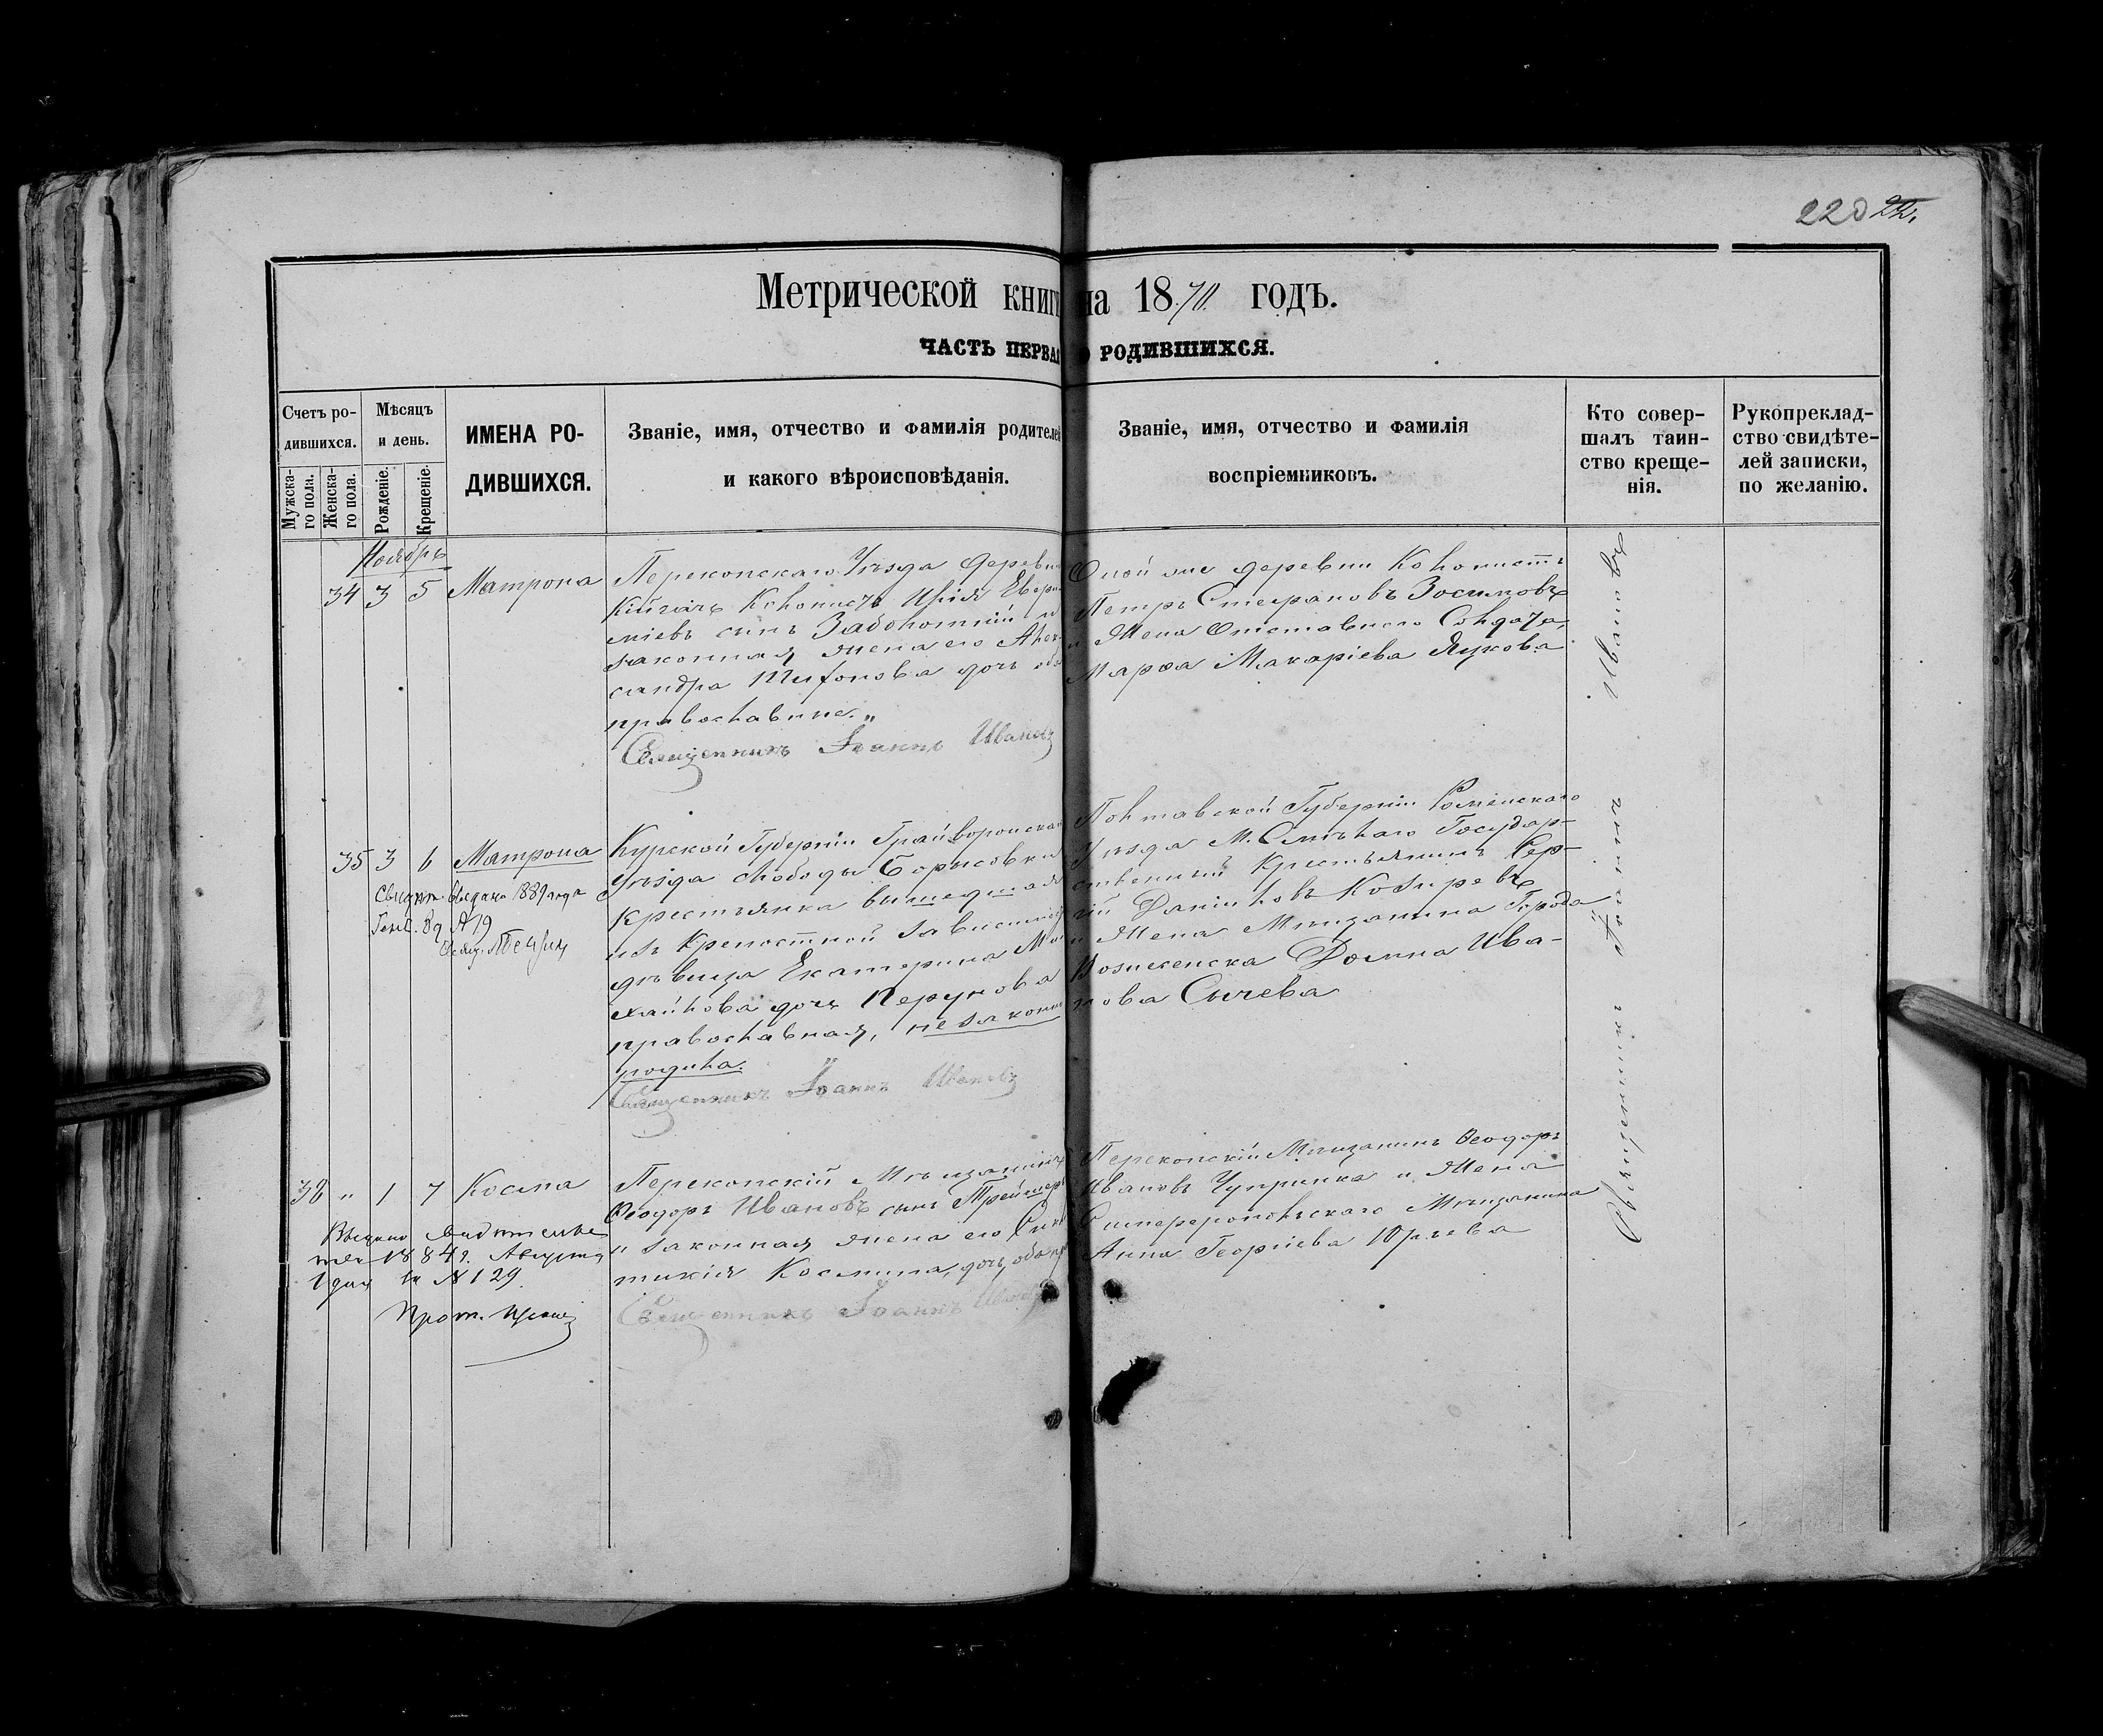 220
Метрической книги на 1870 годъ.
ЧАСТЬ ПЕРВАЯ О РОДИВШИХСЯ.
Счетъ ро-
дившихся.
Мужска-
го пола.
Женска-
го пола.
Мѣсяцъ
и день.
Рожденіе.
Крещеніе.
ИМЕНА РО-
ДИВШИХСЯ.
Званіе, имя, отчество и фамилія родителей
и какого вѣроисповѣданія.
Званіе, имя, отчество и фамилія
воспріемниковъ.
Кто совер-
шалъ таин-
ство креще-
нія.
Рукоприклад-
ство свидѣте-
лей записки,
по желанію.
Ноябрь
34 3 5 Матрона
Перекопскаго Уѣзда деревни
Колонистъ Илія
сынъ Заболотній и
законная жена его Алек-
сандра дочь оба
православные.
Священникъ Іоаннъ Ивановъ
Оной же деревни Колонистъ
Петръ Стефановъ Зосимовъ
и Жена Отставнаго Солдата,
Марѳа Макаріева Жукова
35 3 6 Матрона
Свидѣт. выдано 1889 года
Генв. 8 д № 19
Курской Губерніи Грайворонскаго
Уѣзда слободы Борисовки
крестьянка вышедшая
изъ крепостной зависимости
дѣвица Екатерина Ми-
хайлова дочь Перунова
православная, незаконно
родила.
Священникъ Іоаннъ Ивановъ
Полтавской Губерніи Роменскаго
Уѣзда М. Смѣлаго Государ-
ственный Крестьянинъ Сер-
гій Даніиловъ Козиревъ
и Жена Мѣщанина Города
Вознесенска Домна Ива-
нова Сычева
36 " 1 7 Косма
Выдано свидѣтельс
тво 1884 г. Августа
дня за № 129.
Прот.
Перекопскій Мѣщанинъ
Ѳеодоръ Ивановъ сынъ
и законная жена его Син-
тикія Космина дочь, оба пр
Священникъ Іоаннъ Ивановъ
Перекопскій Мѣщанинъ Ѳеодоръ
Ивановъ Чупринка и Жена
Симферопольскаго Мѣщанина
Анна Георгіева Юрьева
Священникъ Іоаннъ Ивановъ